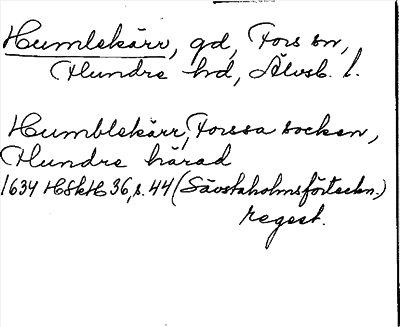 Humlekärr, gd, Fors sn,
Flundre hd, Älvsb. l.
Humblekärr, Forssa socken,
Flundre härad
1634 HSkH 36, s. 44 (Sävstaholmsförteckn.)
regest.